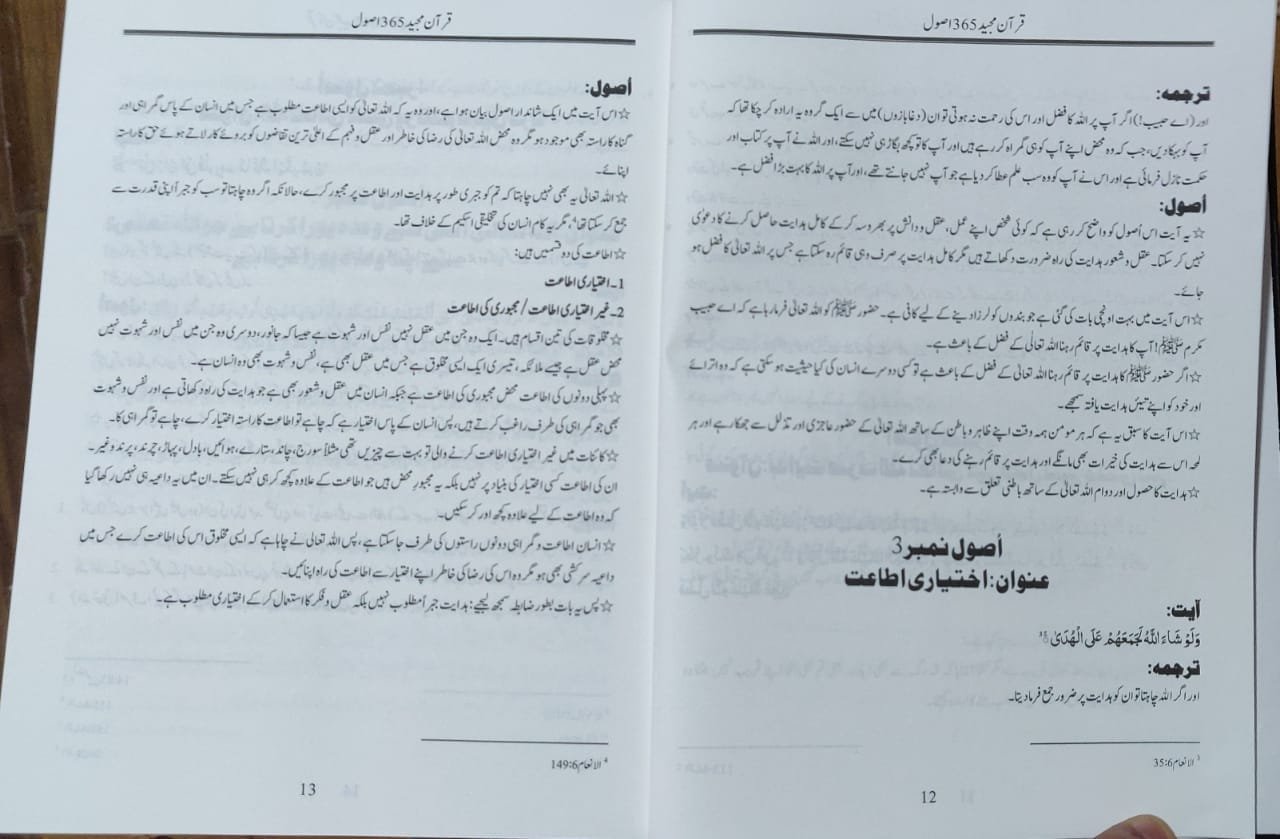 قرآن مجید 365 اصول
ترجمہ:
اور (اے حبیب!) اگر آپ پر اللہ کا فضل اور اس کی رحمت نہ ہوتی تو ان (دغابازوں) میں سے ایک گروہ یہ ارادہ کر چکا تھا کہ
آپ کو بہکا دیں، جب کہ وہ محض اپنے آپ کو ہی گمراہ کر رہے ہیں اور آپ کا تو کچھ بگاڑ ہی نہیں سکتے، اور اللہ نے آپ پر کتاب اور
حکمت نازل فرمائی ہے اور اس نے آپ کو وہ سب علم عطا کر دیا ہے جو آپ نہیں جانتے تھے، اور آپ پر اللہ کا بہت بڑا فضل ہے۔
اُصول:
☆ یہ آیت اس اُصول کو واضح کر رہی ہے کہ کوئی شخص اپنے عمل، عقل و دانش پر بھروسہ کر کے کامل ہدایت حاصل کرنے کا دعویٰ
نہیں کر سکتا۔ عقل و شعور ہدایت کی راہ ضرور ت دکھاتے ہیں مگر کامل ہدایت پر صرف وہی قائم رہ سکتا ہے جس پر اللہ تعالیٰ کا فضل ہو
جائے۔
☆ اس آیت میں بہت اونچی بات کی گئی ہے جو بندوں کو لرزا دینے کے لیے کافی ہے۔ حضور ﷺ کو اللہ تعالیٰ فرما رہا ہے کہ اے حبیب
مکرم ﷺ! آپ کا ہدایت پر قائم رہنا اللہ تعالیٰ کے فضل کے باعث ہے۔
☆ اگر حضور ﷺ کا ہدایت پر قائم رہنا اللہ تعالیٰ کے فضل کے باعث ہے تو کسی دوسرے انسان کی کیا حیثیت ہو سکتی ہے کہ وہ اترائے
اور خود کو اپنے تئیں ہدایت یافتہ سمجھے۔
☆ اس آیت کا سبق یہ ہے کہ ہر مومن ہمہ وقت اپنے ظاہر و باطن کے ساتھ اللہ تعالیٰ کے حضور عاجزی اور تذلل سے جھکا رہے اور ہر
لمحہ اس سے ہدایت کی خیرات بھی مانگے اور ہدایت پر قائم رہنے کی دعا بھی کرے۔
☆ ہدایت کا حصول اور دوام اللہ تعالیٰ کے ساتھ باطنی تعلق سے وابستہ ہے۔
اُصول نمبر 3
عنوان: اختیاری اطاعت
آیت:
وَلَوْ شَاءَ اللّٰهُ لَجَمَعَهُمْ عَلَى الْهُدٰى ۳
ترجمہ:
اور اگر اللہ چاہتا تو ان کو ہدایت پر ضرور جمع فرما دیتا۔
۳ الانعام 35:6
12
قرآن مجید 365 اصول
اُصول:
☆ اس آیت میں ایک شاندار اصول بیان ہوا ہے، اور وہ یہ کہ اللہ تعالیٰ کو ایسی اطاعت مطلوب ہے جس میں انسان کے پاس گمراہی اور
گناہ کا راستہ بھی موجود ہو مگر وہ محض اللہ تعالیٰ کی رضا کی خاطر اور عقل و فہم کے اعلیٰ ترین تقاضوں کو بروئے کار لاتے ہوئے حق کا راستہ
اپنائے۔
☆ اللہ تعالیٰ یہ بھی نہیں چاہتا کہ تم کو جبری طور پر ہدایت اور اطاعت پر مجبور کرے، حالانکہ اگر وہ چاہتا تو سب کو جبراً اپنی قدرت سے
جمع کر سکتا تھا⁴، مگر یہ کام انسان کی تخلیقی اسکیم کے خلاف تھا۔
☆ اطاعت کی دو قسمیں ہیں:
1۔ اختیاری اطاعت
2۔ غیر اختیاری اطاعت / مجبوری کی اطاعت
☆ مخلوقات کی تین اقسام ہیں۔ ایک وہ جن میں عقل نہیں نفس اور شہوت ہے جیسا کہ جانور، دوسری وہ جن میں نفس اور شہوت نہیں
محض عقل ہے جیسے ملائکہ، تیسری ایک ایسی مخلوق ہے جس میں عقل بھی ہے، نفس و شہوت بھی وہ انسان ہے۔
☆ پہلی دونوں کی اطاعت محض مجبوری کی اطاعت ہے جبکہ انسان میں عقل و شعور بھی ہے جو ہدایت کی راہ دکھاتی ہے اور نفس و شہوت
بھی جو گمراہی کی طرف راغب کرتے ہیں، پس انسان کے پاس اختیار ہے کہ چاہے تو اطاعت کا راستہ اختیار کرے، چاہے تو گمراہی کا۔
☆ کائنات میں غیر اختیاری اطاعت کرنے والی تو بہت سے چیزیں تھی مثلاً سورج، چاند، ستارے، ہوائیں، بادل، پہاڑ، چرند، پرند وغیر۔
ان کی اطاعت کسی اختیار کی بنیاد پر نہیں بلکہ یہ مجبورِ محض ہیں جو اطاعت کے علاوہ کچھ کر ہی نہیں سکتے۔ ان میں یہ داعیہ ہی نہیں رکھا گیا
کہ وہ اطاعت کے لیے علاوہ کچھ اور کر سکیں۔
☆ انسان اطاعت و گمراہی دونوں راستوں کی طرف جا سکتا ہے، پس اللہ تعالیٰ نے چاہا ہے کہ ایسی مخلوق اس کی اطاعت کرے جس میں
داعیہ سرکشی بھی ہو مگر وہ اس کی رضا کی خاطر اپنے اختیار سے اطاعت کی راہ اپنائیں۔
☆ پس یہ بات بطور ضابطہ سمجھ لیجیے: ہدایت جبراً مطلوب نہیں بلکہ عقل و فکر کا استعمال کر کے اختیاری مطلوب ہے۔
⁴ الانعام 149:6
13